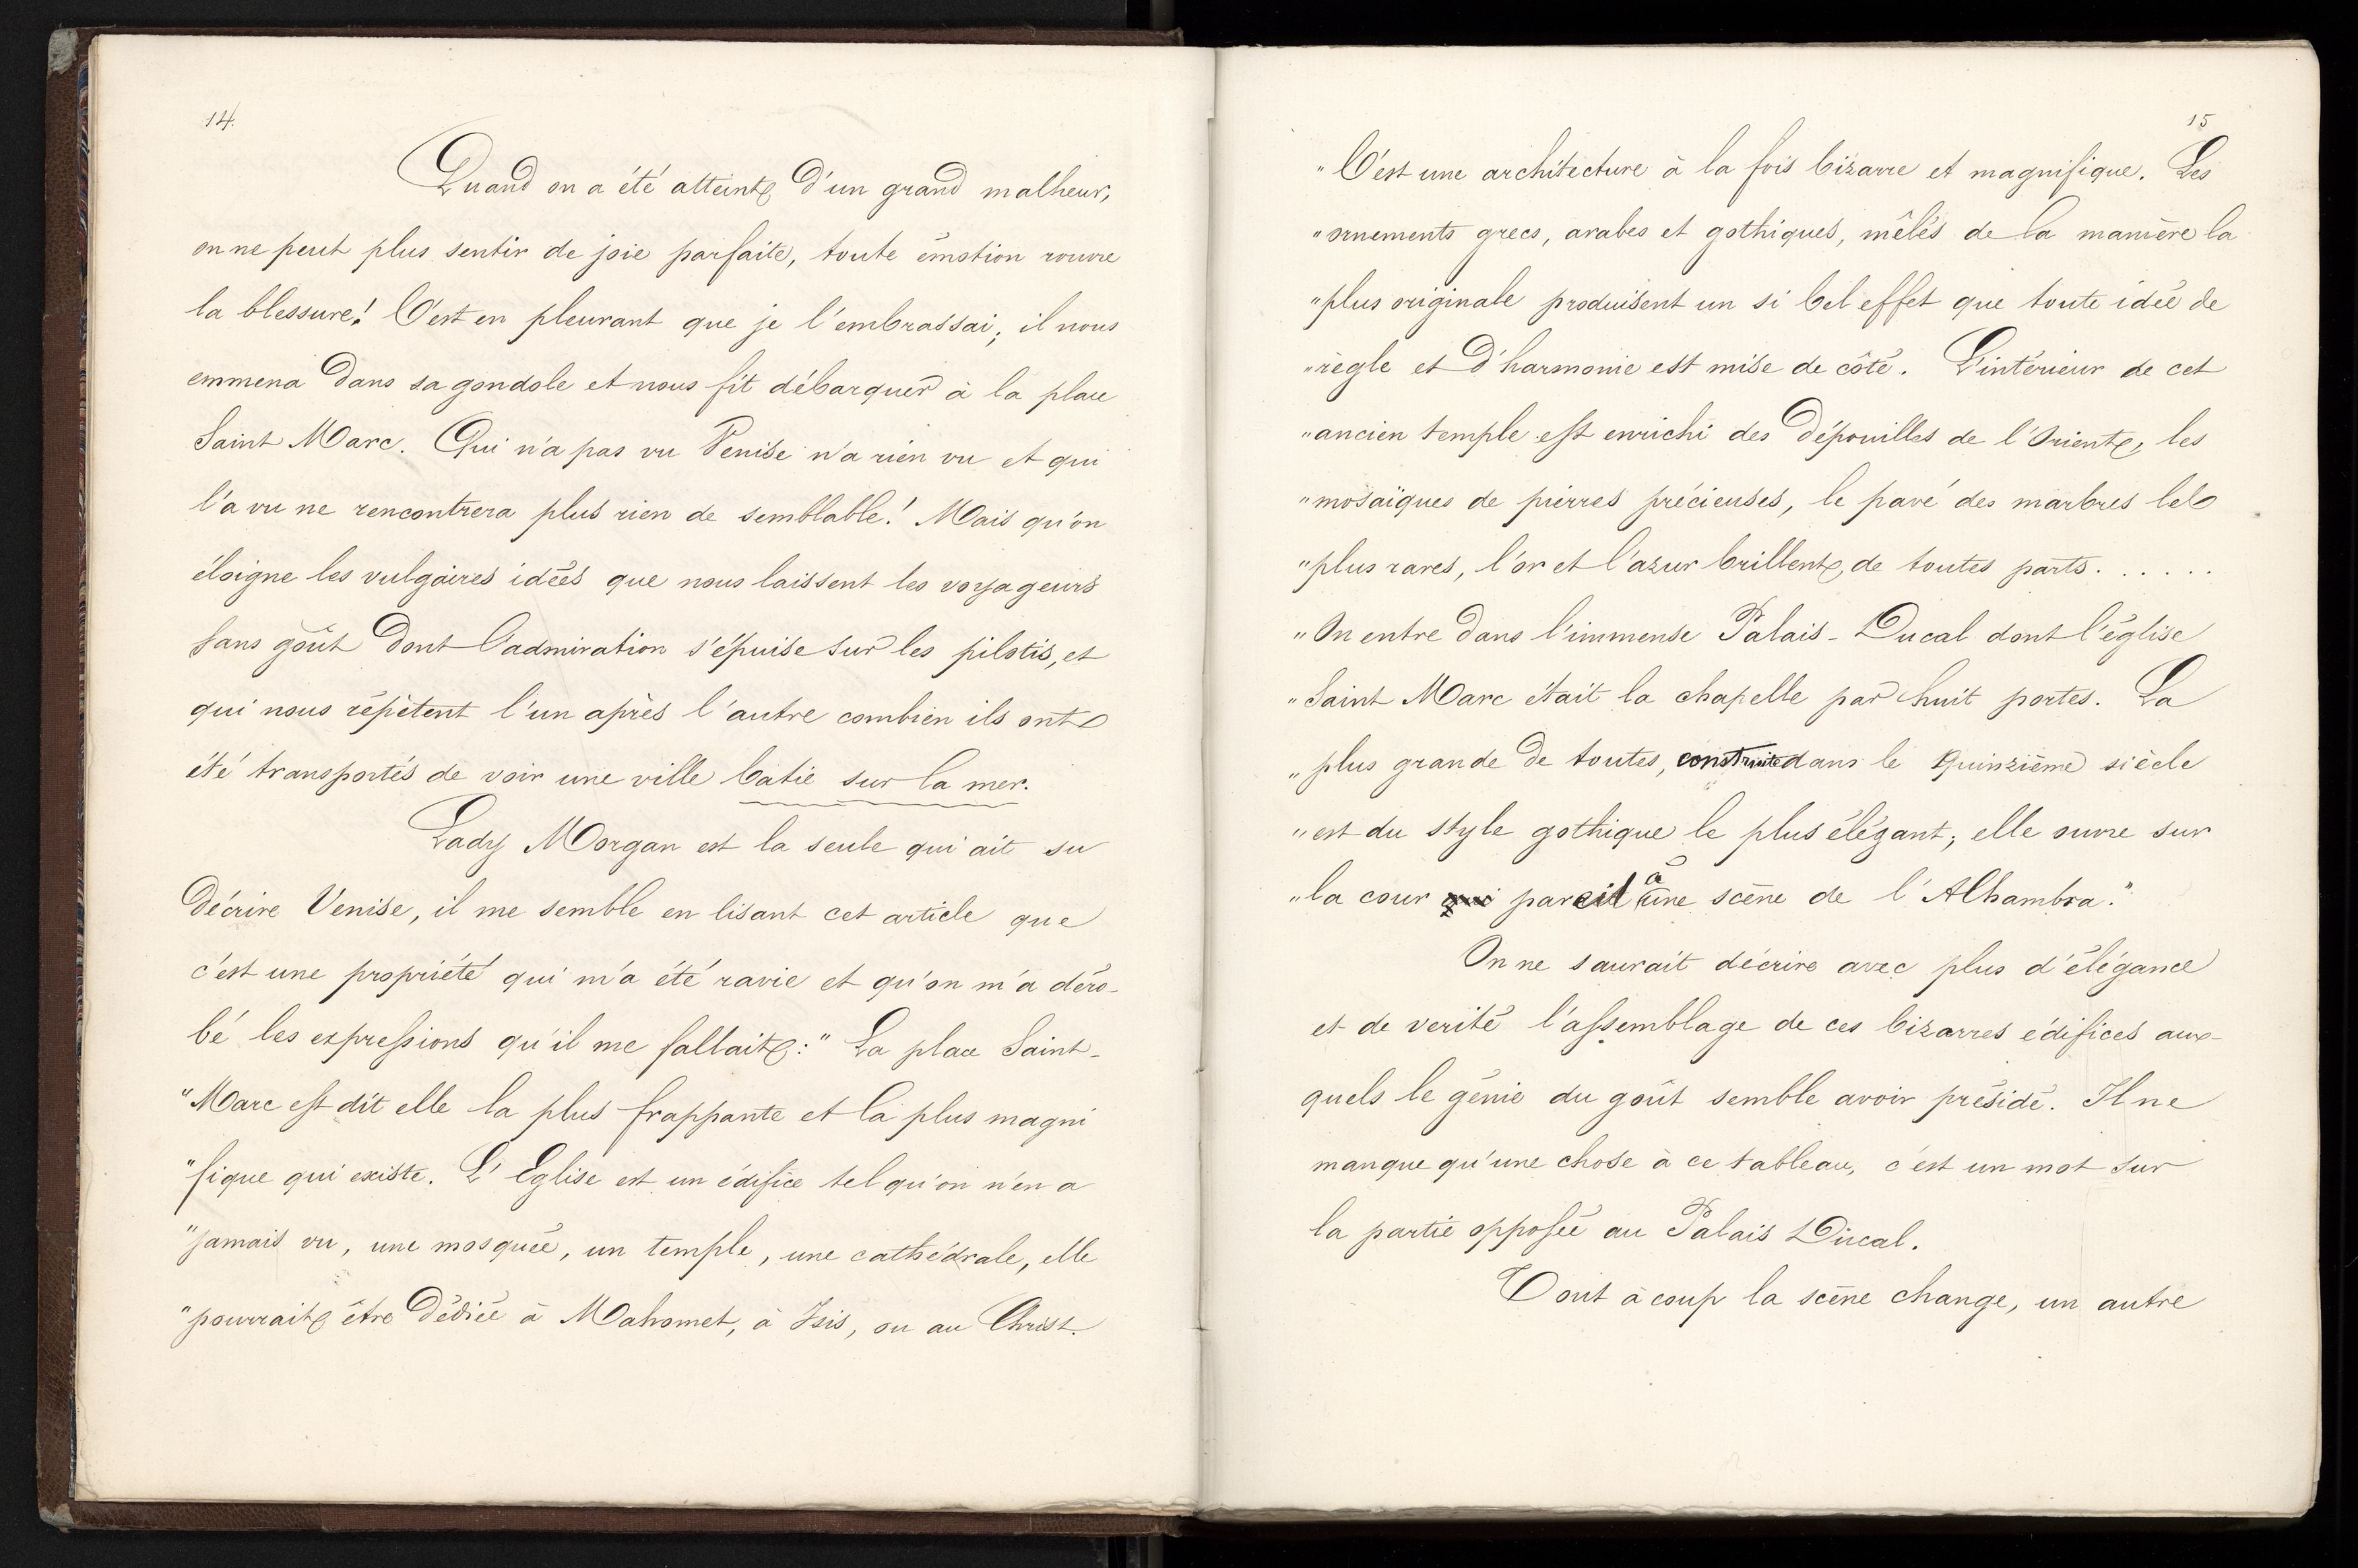 14.
Quand on a été atteint d'un grand malheur,
on ne peut plus sentir de joie parfaite, toute émotion rouvre
la blessure! C'est en pleurant que je l'embrassai; il nous
emmena dans sa gondole et nous fit débarquer à la place
Saint Marc. Qui n'a pas vu Venise n'a rien vu et qui
l'a vu ne rencontrera plus rien de semblable! Mais qu'on
éloigne les vulgaires idées que nous laissent les voyageurs
sans goût dont l'admiration s'épuise sur les pilotis, et
qui nous répètent l'un après l'autre combien ils ont
été transportés de voir une ville batie sur la mer.
Lady Morgan est la seule qui ait su
décrire Venise, il me semble en lisant cet article que
c'est une propriété qui m'a été ravie et qu'on m'a déro-
bé les expressions qu'il me fallait: " La place Saint-
"Marc est dit elle la plus frappante et la plus magni
"fique qui existe. L'Eglise est un édifice tel qu'on n'en a
"jamais vu, une mosquée, un temple, une cathédrale, elle
"pourrait être dédiée à Mahomet, à Isis, ou au Christ.
15
"C'est une architecture à la fois bizarre et magnifique. Les
"ornements grecs, arabes et gothiques, mêlés de la manière la
"plus originale produisent un si bel effet que toute idée de
"règle et d'harmonie est mise de côté. L'intérieur de cet
"ancien temple est enrichi des dépouilles de l'Orient, les
"mosaïques de pierres précieuses, le pavé des marbres les
"plus rares, l'or et l'azur brillent, de toutes parts. . . . . .
"On entre dans l'immense Palais-Ducal dont l'église
"Saint Marc était la chapelle par huit portes. La
"plus grande de toutes, construite dans le quinzième siècle
"est du style gothique le plus élégant; elle ouvre sur
"la cour qui pareil à une scène de l'Alhambra."
On ne saurait décrire avec plus d'élégance
et de verité l'assemblage de ces bizarres édifices aux-
quels le génie du goût semble avoir présidé. Il ne
manque qu'une chose à ce tableau, c'est un mot sur
la partie opposée au Palais Ducal.
Tout à coup la scène change, un autre